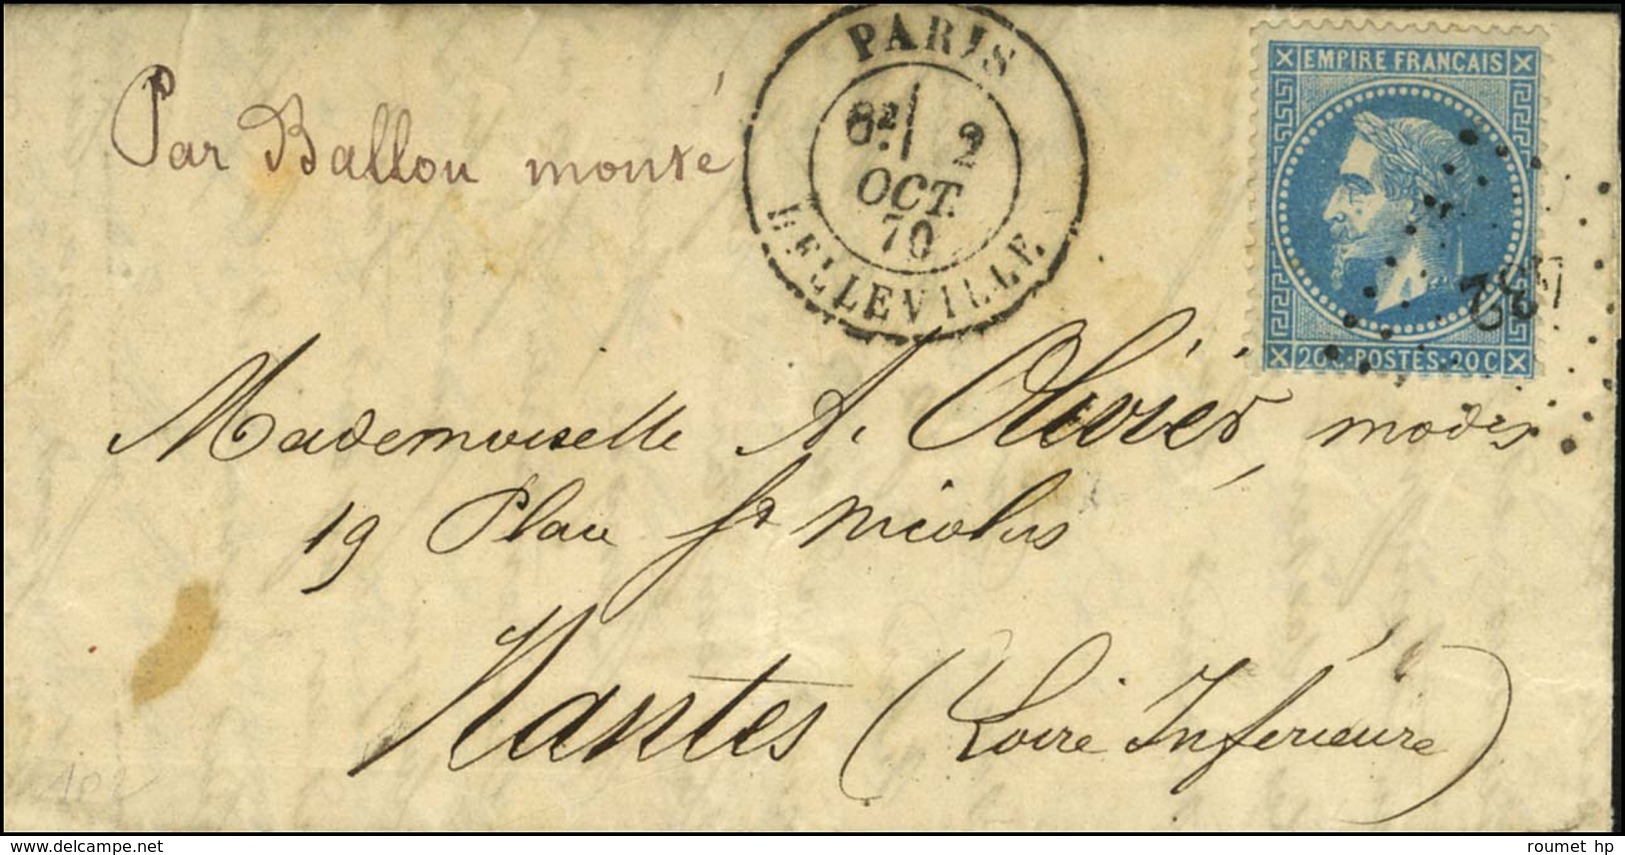 PARIS
2
OCT.
70
BELLEVILLE
EMPIRE FRANCAIS
20C · POSTES · 20C
Par Ballon monté
Mademoiselle A. Olivier, modes
19 Place St Nicolas
Nantes (Loire Inférieure)
102
delcampe.net
roumet hp